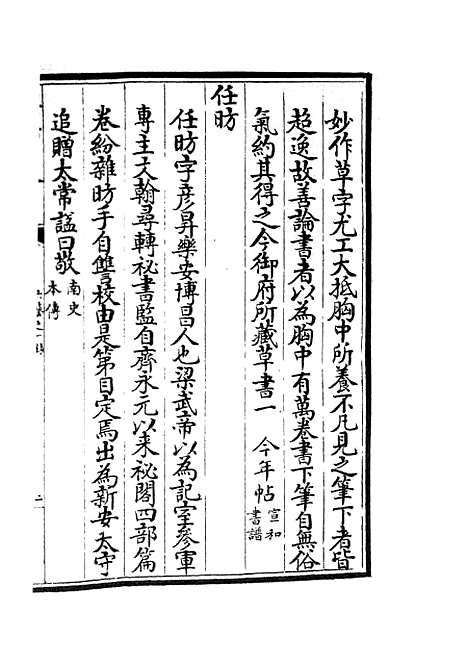 妙作草字尤工大抵胸中所養不凡見之筆下者皆
超逸故善論書者以為胸中有萬卷書下筆自無俗
氣約其得之今御府所藏草書一　今年帖宣和書譜
任昉
任昉字彥昇樂安博昌人也梁武帝以為記室參軍
專主文翰尋轉秘書監自齊永元以来秘閣四部篇
卷紛雜昉手自讐校由是第目定焉出為新安太守
追贈太常諡曰敬南史本傳
二